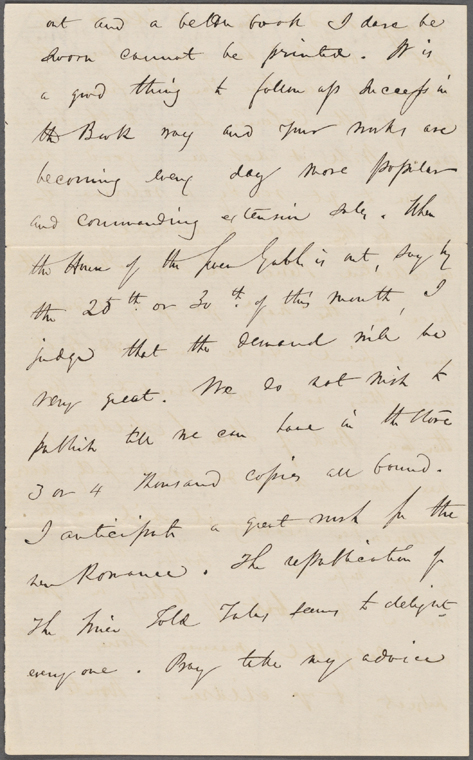 out and a better book I dare be
sworn cannot be printed. It is
a good thing to follow up success in
the Book way and your works are
becoming every day more popular
and commanding extensive sales. When
the House of the Seven Gables is out, say by
the 25th or 30th of this month, I
judge that the demand will be
very great. We do not wish to
publish till we can have in the store
3 or 4 thousand copies all bound.
I anticipate a great rush for the
new Romance. The republication of
The Twice Told Tales seems to delight
every one. Pray take my advice